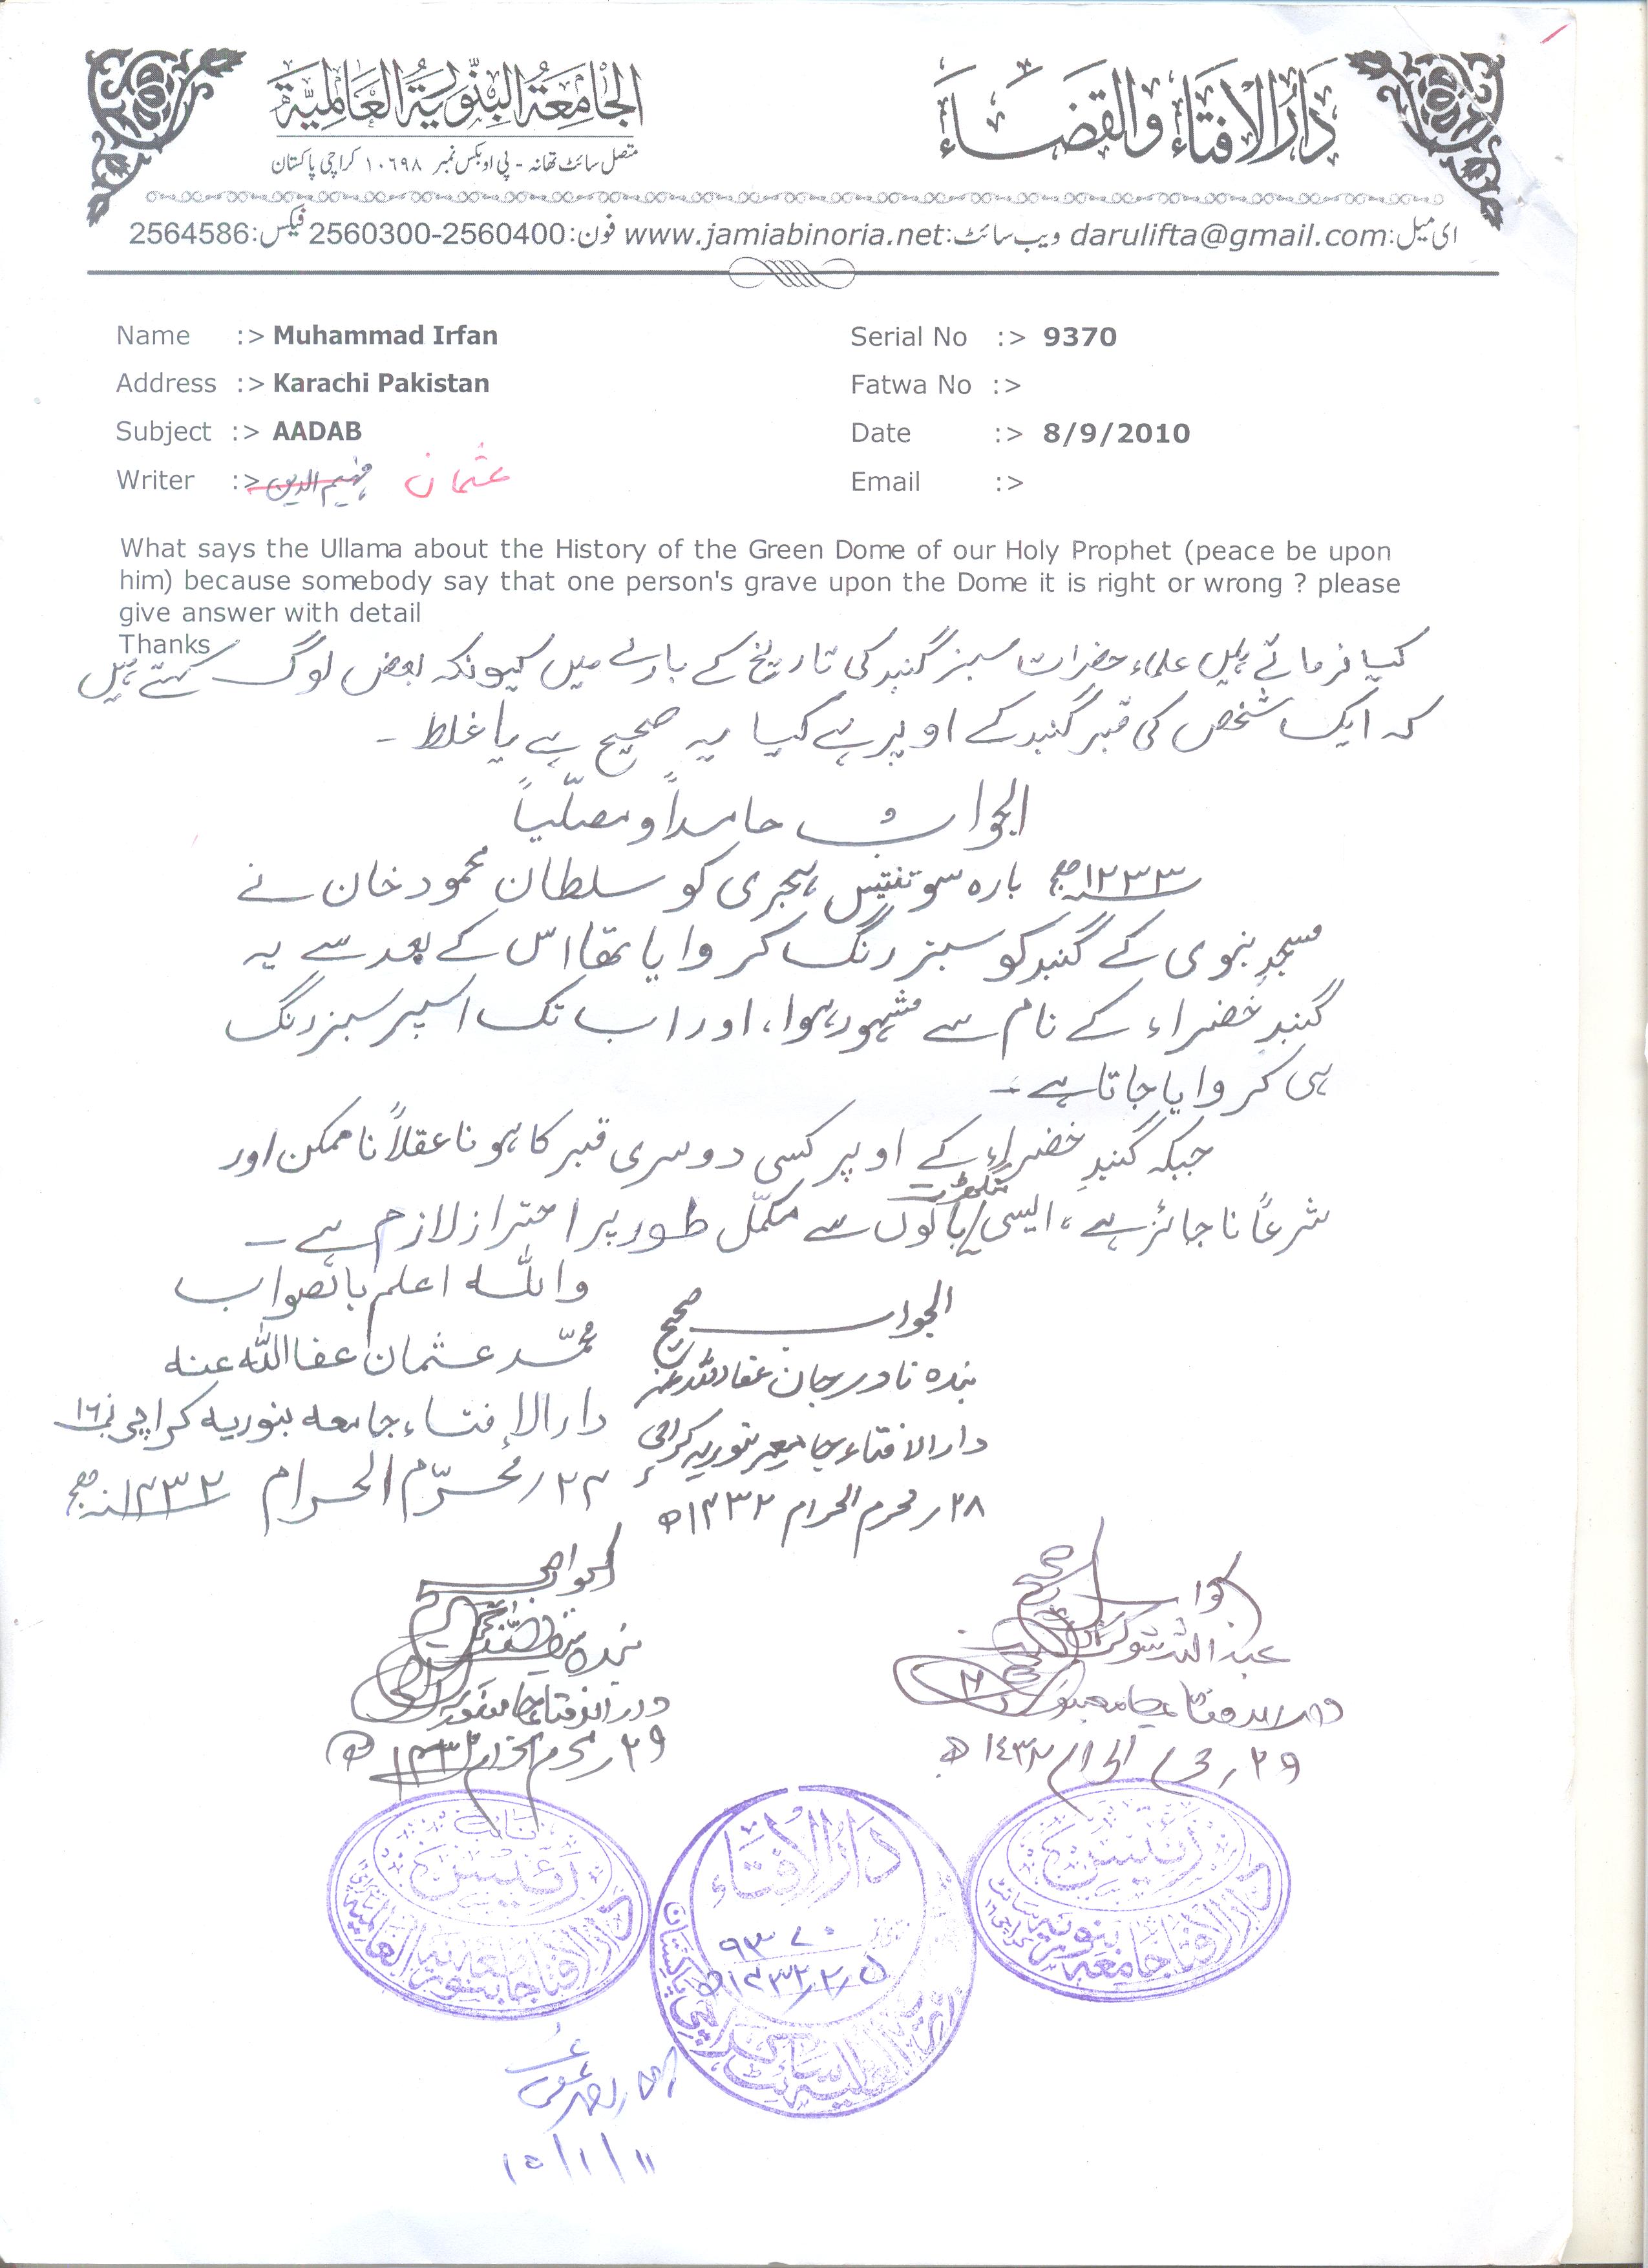 دَارُ الْاِفْتَاءِ وَالقَضَاءِ
الْجَامِعَةُ الْبِنُّورِيَّةُ الْعَالَمِيَّة
متصل سائٹ تھانہ - پی او بکس نمبر ۱۰۶۹۸ کراچی پاکستان
ای میل: darulifta@gmail.com ویب سائٹ: www.jamiabinoria.net فون: 2560300-2560400 فیکس: 2564586
Name :> Muhammad Irfan
Serial No :> 9370
Address :> Karachi Pakistan
Fatwa No :>
Subject :> AADAB
Date :> 8/9/2010
Writer :> فہیم الدین عثمان
Email :>
What says the Ullama about the History of the Green Dome of our Holy Prophet (peace be upon
him) because somebody say that one person's grave upon the Dome it is right or wrong ? please
give answer with detail
Thanks
کیا فرماتے ہیں علماء حضرات سبز گنبد کی تاریخ کے بارے میں کیونکہ بعض لوگ کہتے ہیں
کہ ایک شخص کی قبر گنبد کے اوپر ہے کیا یہ صحیح ہے یا غلط ۔
الجواب حامداً و مصلّیاً
۱۲۳۳ھ بارہ سو تینتیس ہجری کو سلطان محمود خان نے
مسجدِ نبوی کے گنبد کو سبز رنگ کروایا تھا اس کے بعد سے یہ
گنبدِ خضراء کے نام سے مشہور ہوا، اور اب تک اسپر سبز رنگ
ہی کروایا جاتا ہے ۔
جبکہ گنبدِ خضراء کے اوپر کسی دوسری قبر کا ہونا عقلاً ناممکن اور
شرعاً ناجائز ہے ، ایسی منگھڑت باتوں سے مکمّل طور پر احتراز لازم ہے ۔
واللہ اعلم بالصواب
محمّد عثمان عفا اللہ عنہ
دار الإفتاء جامعہ بنوریہ کراچی نمبر ۱۶
۲۷ / محرّم الحرام ۱۴۳۲ھ
الجواب صحیح
بندہ نادر جان عفا اللہ عنہ
دار الافتاء جامعہ بنوریہ کراچی
۲۸ / محرم الحرام ۱۴۳۲ھ
الجواب صحیح
عبد اللہ شوکت
دار الافتاء جامعہ بنوریہ
۲۹ / محرم الحرام ۱۴۳۲ھ
الجواب صحیح
بندہ
دار الافتاء جامعہ بنوریہ
۲۹ / محرم الحرام ۱۴۳۲ھ
نائب
رئیس
دار الافتاء جامعہ بنوریہ العالمیہ
دَارُ الْاِفْتَاء
۹۳۷۰
۵/۲/۱۴۳۲ھ
العالمیہ سائٹ کراچی پاکستان
رئیس
دار الافتاء جامعہ بنوریہ سائٹ کراچی ۱۶
۱۵/۱/۱۱